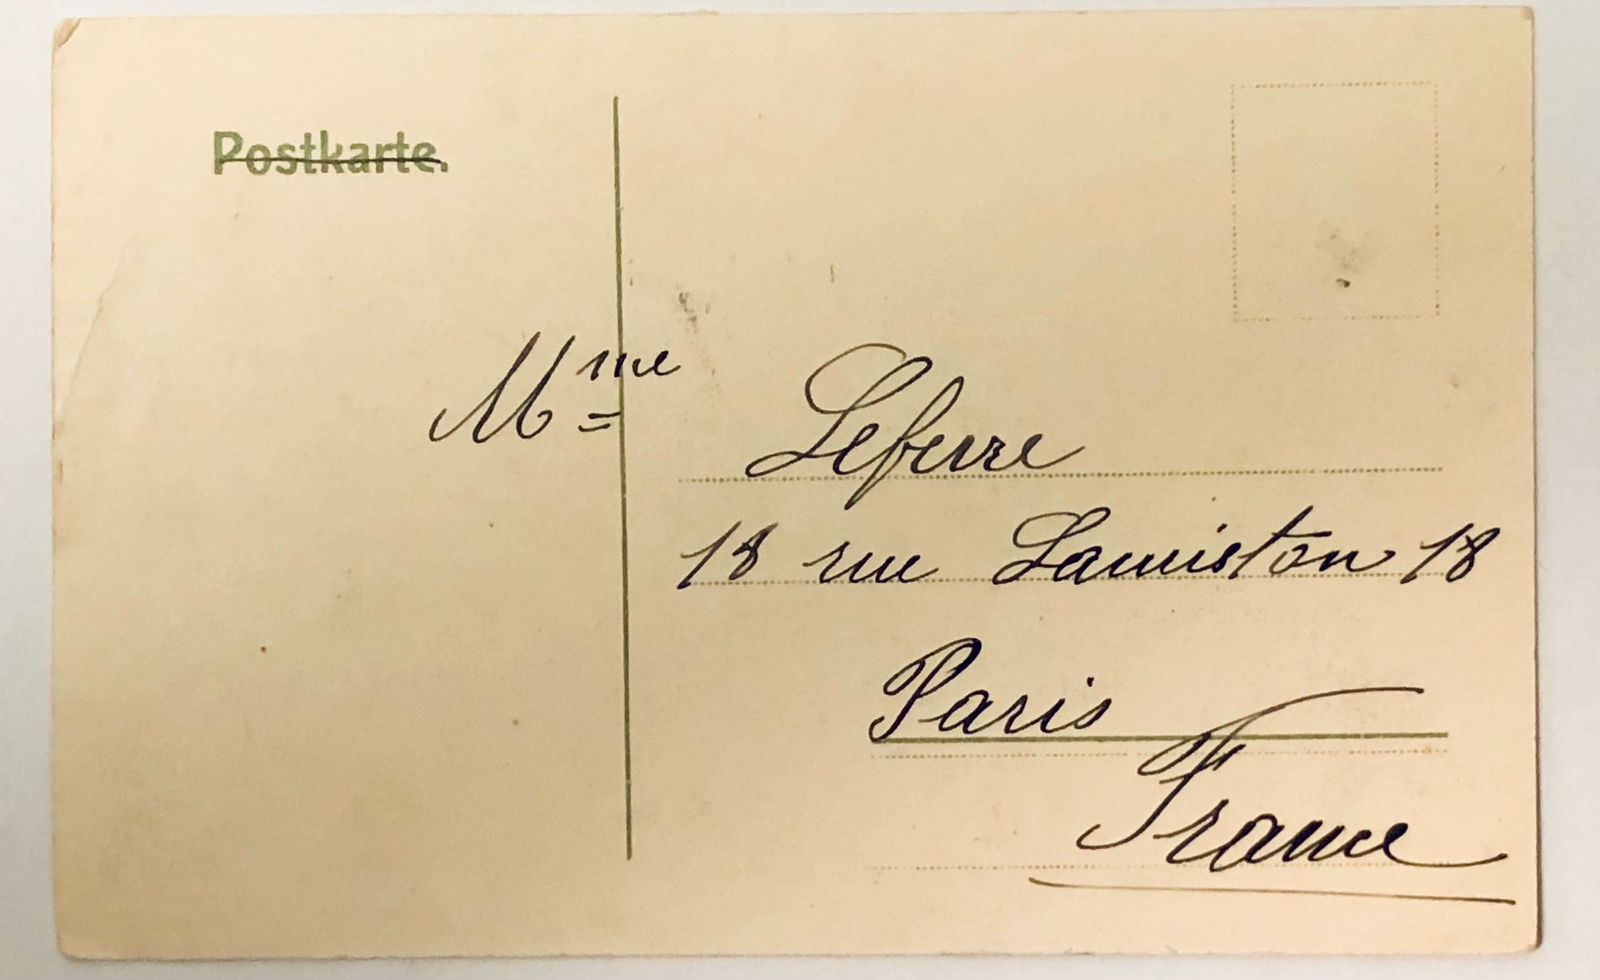 Postkarte.
Mme Lefevre
18 rue Lauriston 18
Paris
France